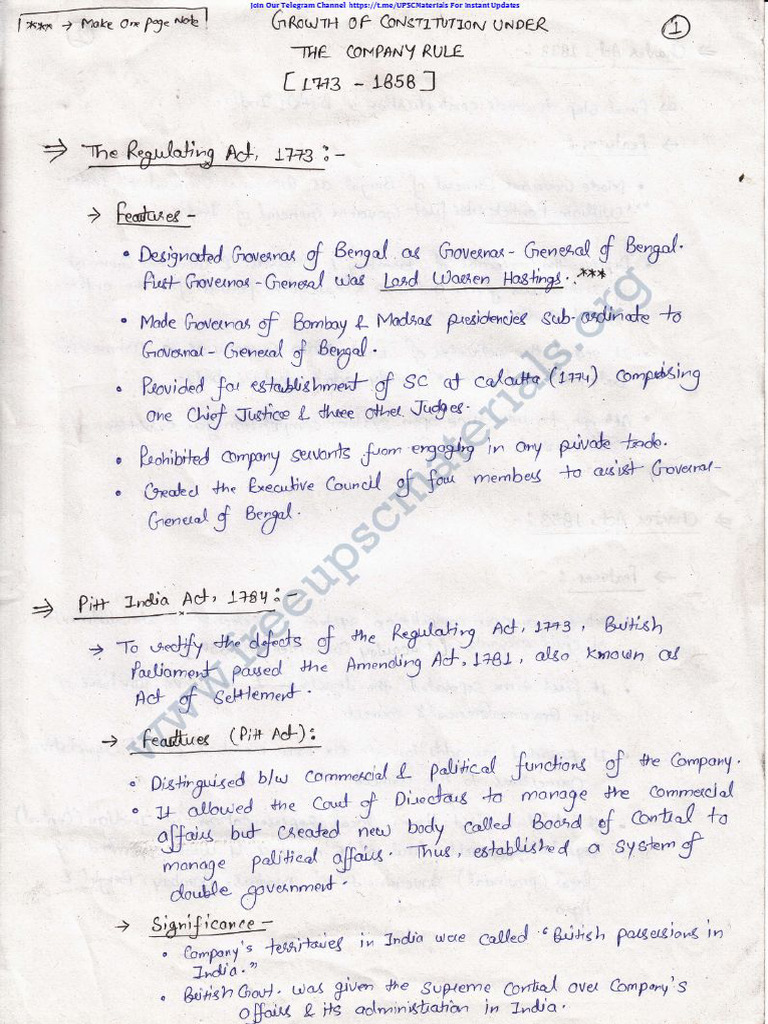 Join Our Telegram Channel https://t.me/UPSCMaterials For Instant Updates
*** → Make One page Note
GROWTH OF CONSTITUTION UNDER
THE COMPANY RULE
[1773 - 1858]
1
⇒ The Regulating Act, 1773 :-
→ Features -
• Designated Governor of Bengal as Governor-General of Bengal.
First Governor-General was Lord Warren Hastings. ***
• Made Governor of Bombay & Madras presidencies sub-ordinate to
Governor-General of Bengal.
• Provided for establishment of SC at Calcutta (1774) comprising
one Chief Justice & three other Judges.
• Prohibited company servants from engaging in any private trade.
• Created the Executive Council of four members to assist Governor-
General of Bengal.
⇒ Pitt India Act, 1784 :-
→ To rectify the defects of the Regulating Act, 1773, British
Parliament passed the Amending Act, 1781, also known as
Act of Settlement.
→ Features (Pitt Act):
• Distinguised b/w commercial & political functions of the Company.
• It allowed the Court of Directors to manage the commercial
affairs but created new body called Board of Control to
manage political affairs. Thus, established a system of
double government.
→ Significance -
• Company's territories in India were called "British possessions in
India."
• British Govt. was given the supreme control over Company's
affairs & its administration in India.
www.freeupscmaterials.org